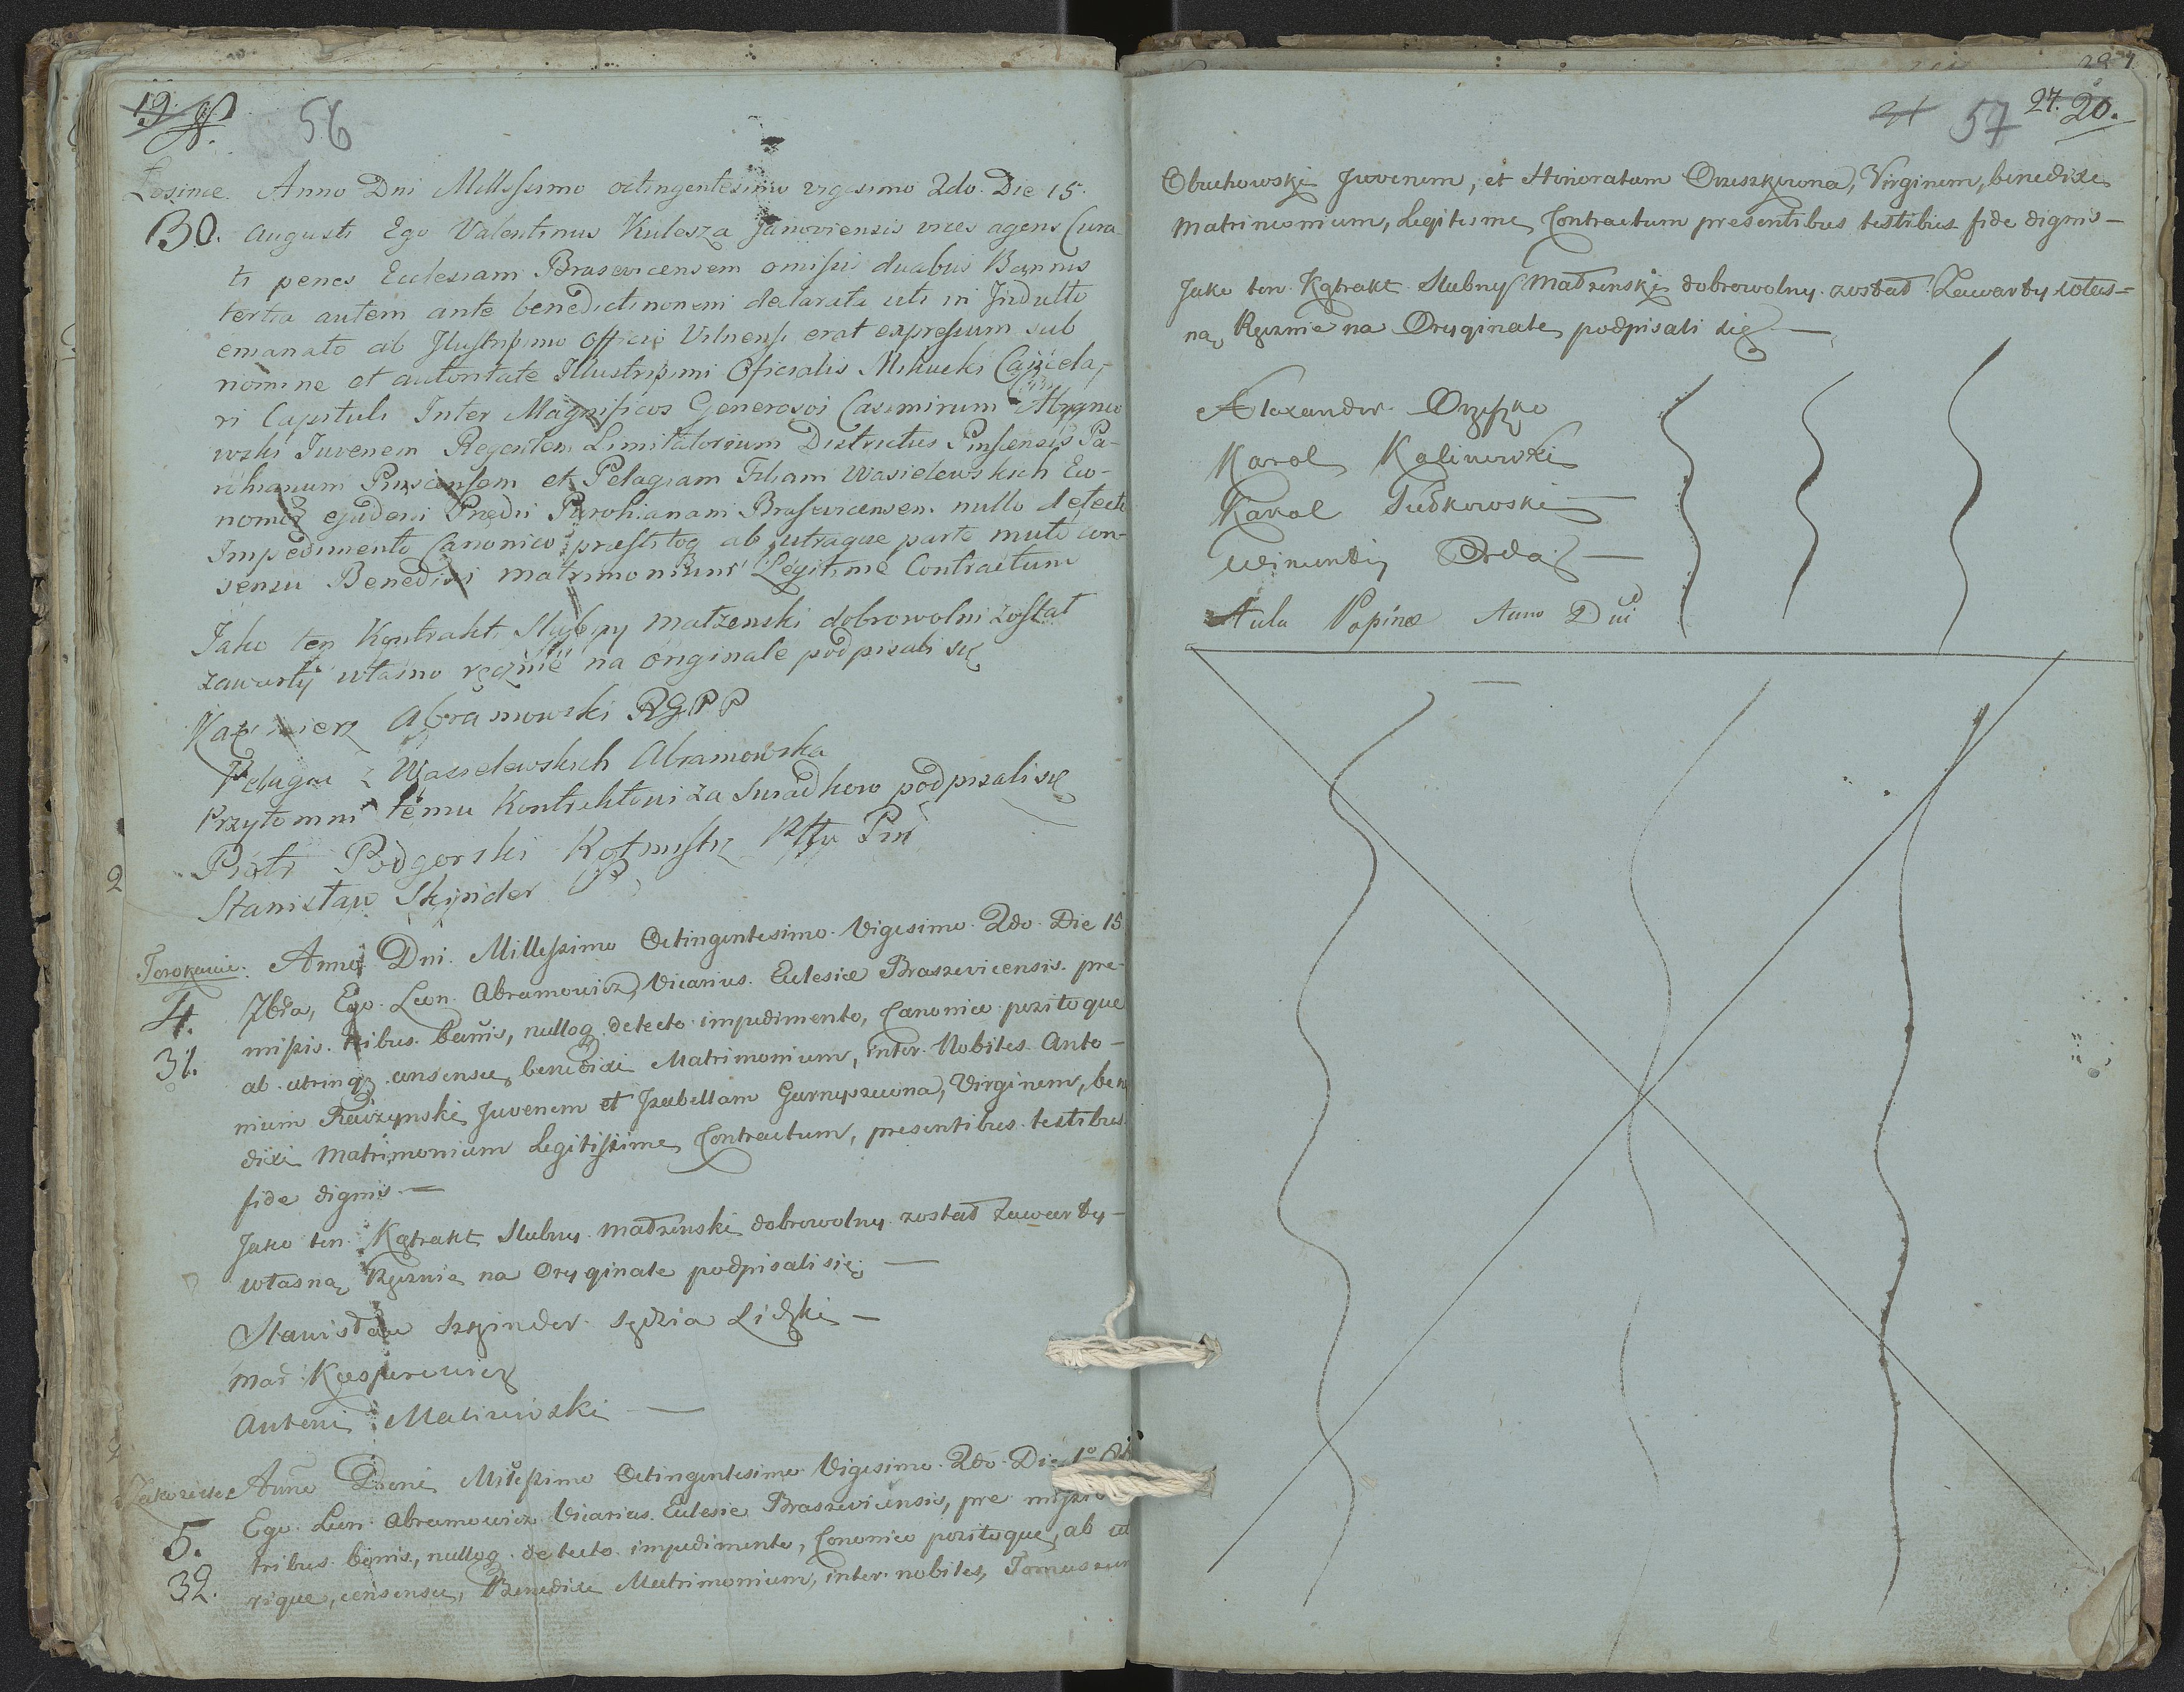 19. 56
Łosince. Anno Dni Millessimo octingentesimo vigesimo 2do. Die 15.
30. Augusti Ego Valentinus Kulesza Janoviensis vices agens Cura
ti penes Eclesiam Brasevicensem omissis duabus Bannis
tertia autem ante benedictinonem declarata uti in Indulto
emanato ab Ilustrissimo Officio Vilnensi erat expressum sub
nomine et autoritate Illustrissimi Oficialis Mikucki Cancela,
ri Capituli Inter Magnificos Generosos Casimirum Abramo
wski Juvenem Regentem Limitatorium Districtus Pinscensis Pa-
rohianum Pinscensem et Pelagiam Filiam Wasielewskich Eco-
nomoż ejudem Prędii Parohianam Brasevicensem. nullo detecto
Impedimento Canonico prestitoq ab utraque parte mutô con-
sensu Benedixi matrimonium Legitime Contractum
Jako ten Kontrakt Slubny matżenski dobrowolni zostal
zawartÿ wlasno ręcznie na originale podpisali się
Kazimierz Abramowski RGPP
Pelagia z Wasielewskich Abramowska
Przytomni temu Kontraktowi za Swiadkow podpisali się
Piotr Podgorski Rotmistrz Pttu Piń
2
Stanisław Skinder
Torokanie. Anno Dni. Millessimo Octingentesimo. Vigesimo. 2do. Die 15
4. 7bra, Ego. Leon. Abramowicz, Vicarius. Eclesiæ Braszevicensis. pre-
31. missis. tribus. banis, nulloq. detecto impedimento, Canonico pozitoque
ab. utrinq. consensu, benedixi Matrimonium, inter. Nobiles. Anto-
nium Raczynski Juvenem et Izabellam Garnyszewna, Virginem, bene
dixi Matrimonium Legitissime, Contractum, presentibus. testibus.
fide dignis —
Jako ten Kątrakt Slubny. małżenski dobrowolny. zostal zawarty —
własną Ręcznie na Oryginale podpisali się. —
Stanisław Szkinder. Sędzia Lidzki —
Mar: Kasperowicz
Antoni Malinowski —
Anno Domi Milessimo Octingentesimo Vigesimo. 2do. Die 1o
5. Ego. Leon. Abramowicz Vicarius. Eclesie Braszevicensis, pre missis
tribus. banis., nulloq. detecto. impedimento, Canonico pozitoque, ab ut
32. rique, consensu, Benedixi Matrimonium, inter. nobiles, Tomaszum
57 27. 20.
Obuchowski Juvenem, et Honoratam Orzeszkuwna, Virginem, benedixi
Matrimonium, Legitisme, Contractum presentibus testibus fide dignis —
Jako ten. Kątrakt. Slubny Małżenski dobrowolny. zostal Zawarty włas=
ną Ręcznie na Oryginale podpisali się —
Alexander Orzeszko
Karol Kalinowski
Karol Sutkowski —
Orda —
Aula Popina Anno Dni